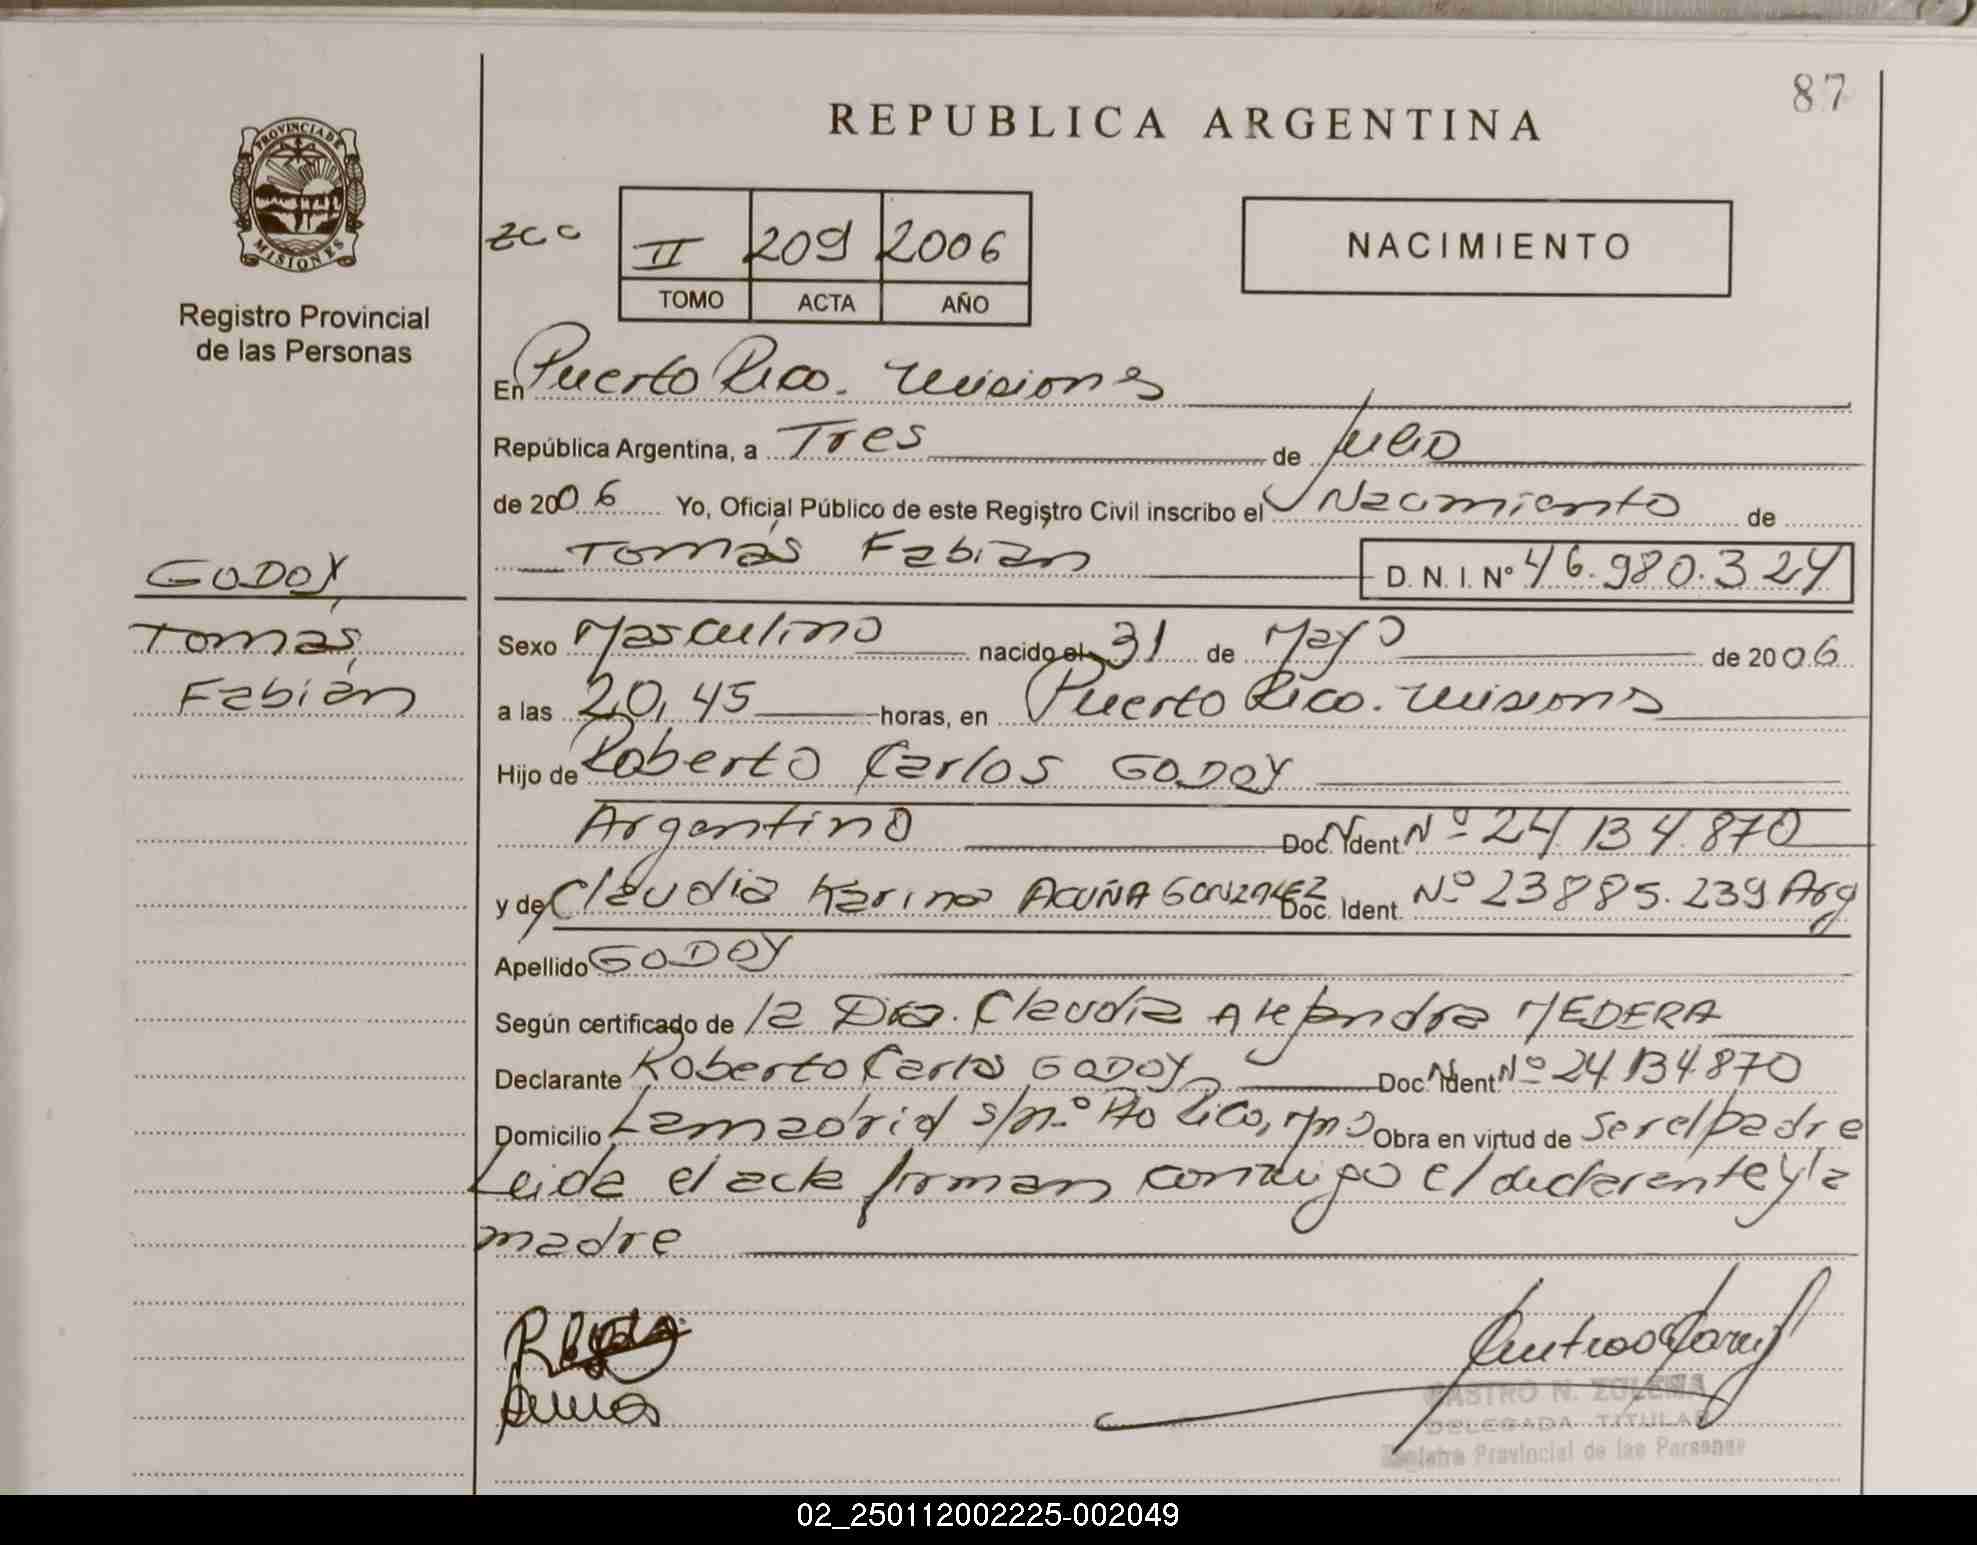 87
REPUBLICA ARGENTINA
PROVINCIA DE
MISIONES
Registro Provincial
de las Personas
II 209 2006
TOMO ACTA AÑO
NACIMIENTO
En Puerto Rico. Misiones
República Argentina, a Tres de Julio
de 2006 Yo, Oficial Público de este Registro Civil inscribo el Nacimiento de
Tomás Fabián D. N. I. Nº 46.980.324
GODOY
Tomás,
Fabián
Sexo Masculino nacido el 31 de Mayo de 2006
a las 20,45 horas, en Puerto Rico. Misiones
Hijo de Roberto Carlos GODOY
Argentino Doc. Ident Nº 24.134.870
y de Claudia Karina ACUÑA GONZALEZ Doc. Ident. Nº 23885.239 Arg
Apellido GODOY
Según certificado de la Dra. Claudia Alejandra MEDERA
Declarante Roberto Carlos GODOY Doc. Ident Nº 24.134.870
Domicilio Lamadrid s/nº Pto Rico, Mns Obra en virtud de ser el padre
Leida el acta firman conmigo el declarante y la
madre
CASTRO N. ZULEMA
DELEGADA TITULAR
Registro Provincial de las Personas
02_250112002225-002049